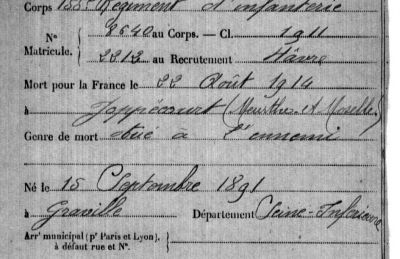 Corps 155e Régiment d'infanterie
N° 8640 au Corps. — Cl. 1911
Matricule. 2212 au Recrutement Hâvre
Mort pour la France le 22 Août 1914
à Joppécourt (Meurthe et Moselle)
Genre de mort tué à l'ennemi
Né le 15 Septembre 1891
à Graville Département Seine-Inférieure
Arrt municipal (pr Paris et Lyon),
à défaut rue et N°.